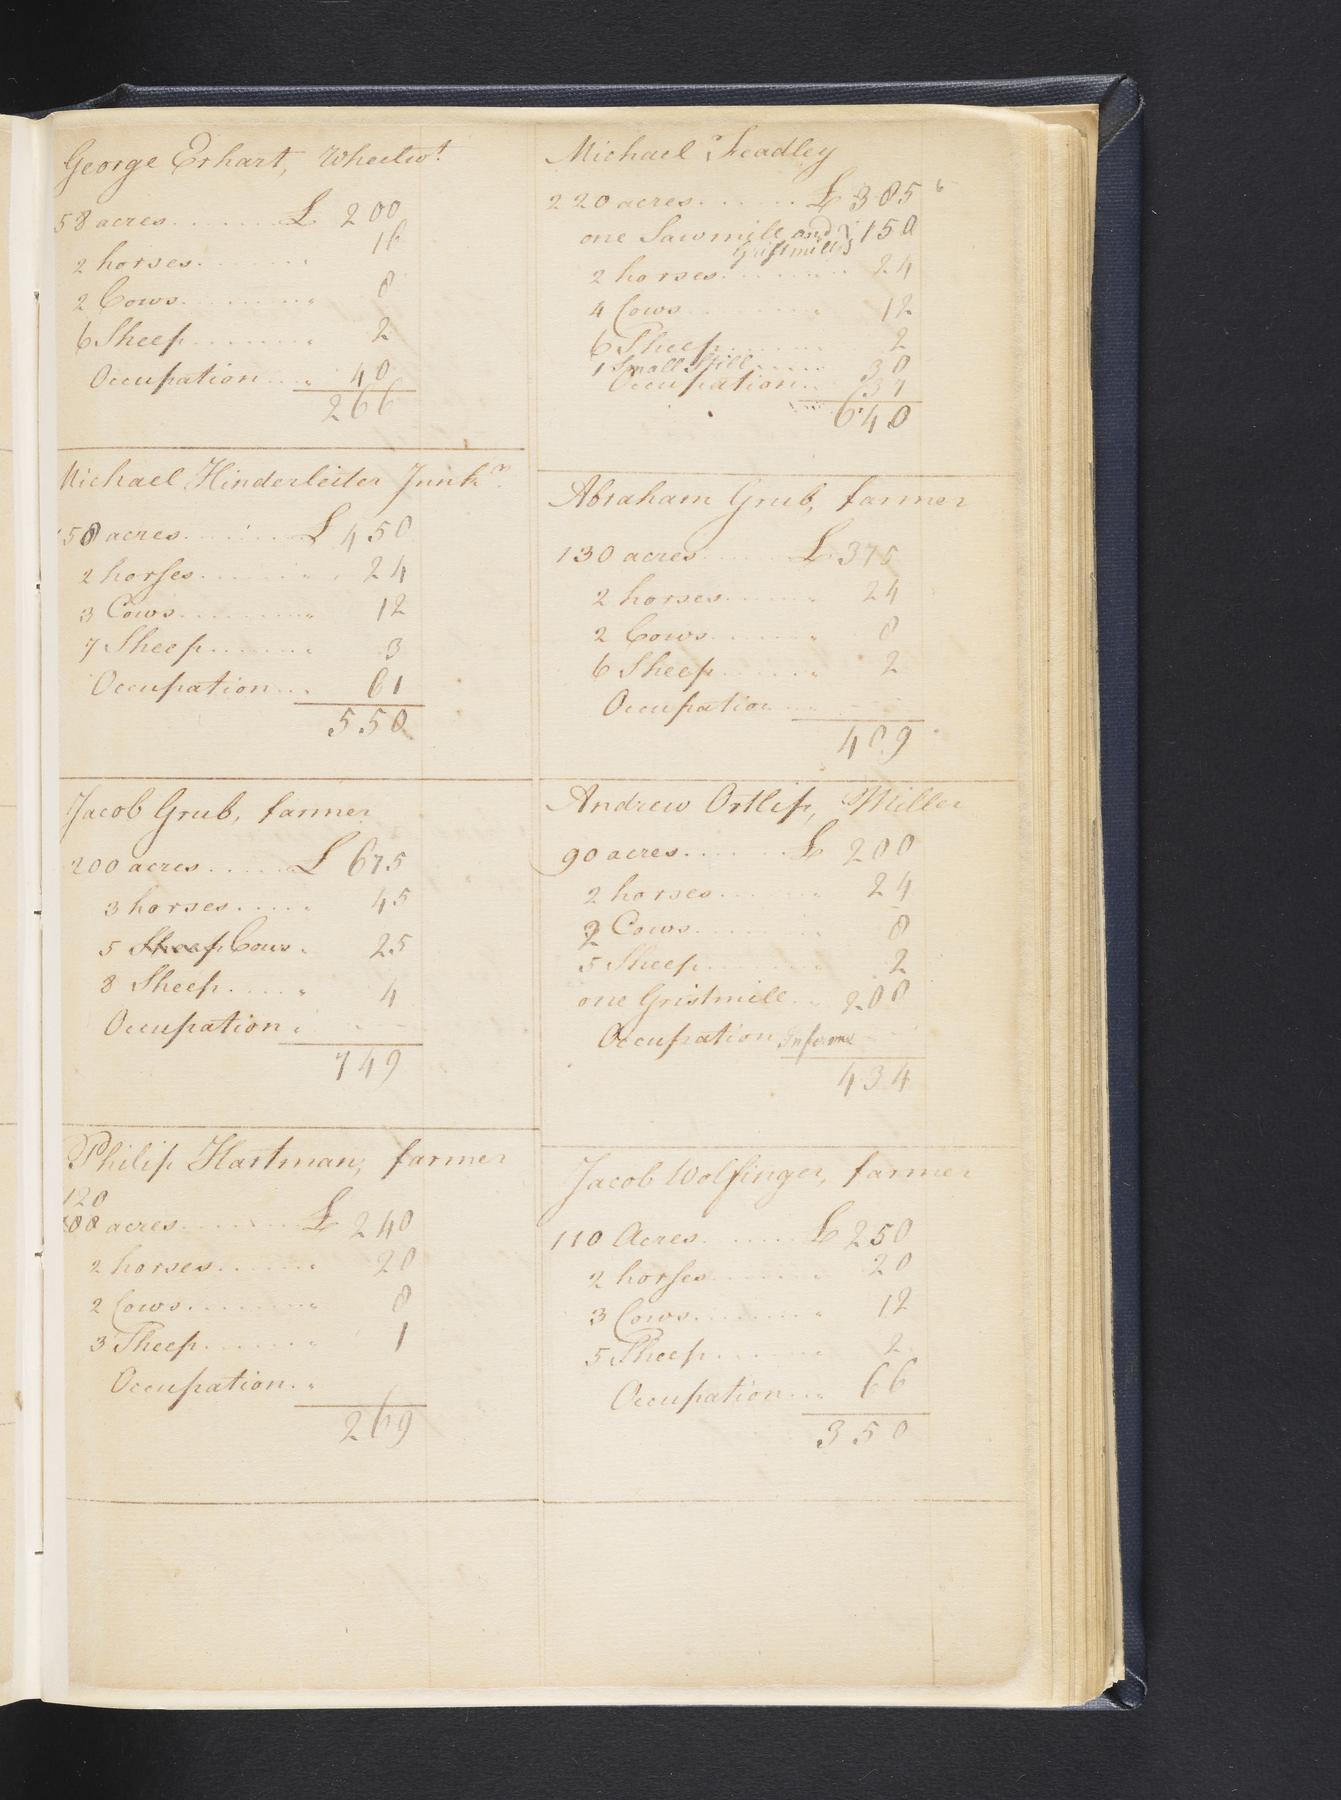 George Erhart, Wheelwt.
58 acres . . . . . . . £ 200
2 horses . . . . . . . 16
2 Cows . . . . . . . 8
6 Sheep . . . . . . . 2
Occupation . . . 40
266
Michael Hinderleiter Junkr.
150 acres . . . . . . £ 450
2 horses . . . . . . . 24
3 Cows . . . . . . . 12
7 Sheep . . . . . . 3
Occupation . . . 61
550
Jacob Grub, farmer
200 acres . . . . . £ 675
3 horses . . . . . 45
5 Sheep Cows . 25
8 Sheep . . . . . 4
Occupation . - -
749
Philip Hartman, farmer
120
100 acres . . . . . . . £ 240
2 horses . . . . . . 20
2 Cows . . . . . . . 8
3 Sheep . . . . . . 1
Occupation . .
269
Michael Headley
220 acres . . . . . . £ 385 6
one Sawmill and } 150
Gristmill }
2 horses . . . . . . . 24
4 Cows . . . . . . . 12
6 Sheep . . . . . . 2
1 Small Still . . . . . 30
Occupation . . . 37
640
Abraham Grub, farmer
130 acres . . . . . . £ 375
2 horses . . . . . . 24
2 Cows . . . . . . 8
6 Sheep . . . . . . 2
Occupation . . . - -
409
Andrew Ortlip, Miller
90 acres . . . . . . £ 200
2 horses . . . . . . 24
2 Cows . . . . . . . 8
5 Sheep . . . . . . 2
one Gristmill . . 200
Occupation Infirm
434
Jacob Wolfinger, farmer
110 Acres . . . . . . £ 250
2 horses . . . . . . 20
3 Cows . . . . . . . 12
5 Sheep . . . . . . 2
Occupation . . . 66
350